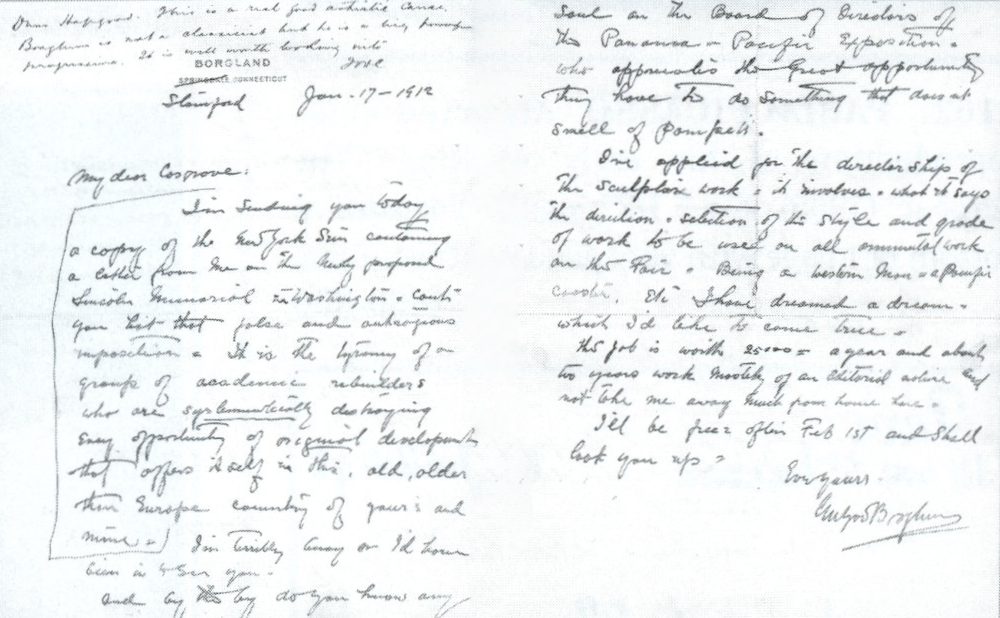 Dear Hapgood. This is a real good artistic cause.
Borglum is not a classicist but he is a big
progressive. It is well worth looking into
BORGLAND
SPRINGDALE CONNECTICUT
Stamford Jan-17-1912
My dear Cosgrove:
I'm sending you today
a copy of the New York Sun containing
a letter from me on the newly proposed
Lincoln Memorial in Washington - can't
you hit that false and outrageous
imposition - It is the tyranny of a
group of academic rebuilders
who are systematically destroying
every opportunity of original development
that offers itself in this, old, older
than Europe country of yours and
mine -) I'm terribly busy or I'd have
been in to see you -
and by the by do you know any
Soul on the Board of Directors of
the Panama - Pacific Exposition -
who appreciates the Great opportunity
they have to do something that doesn't
smell of Pompeii.
I've applied for the directorship of
the sculpture work - it involves - what it says
the direction - selection of the style and grade
of work to be used on all ornamental work
on the Fair - Being a western man - a Pacific
coaster, etc I have dreamed a dream -
which I'd like to come true -
the job is worth 25000 = a year and about
two years work mostly of an Editorial nature and
not take me away much from home here -
I'll be free after Feb 1st and shall
look you up -
Ever yours.
Gutzon Borglum